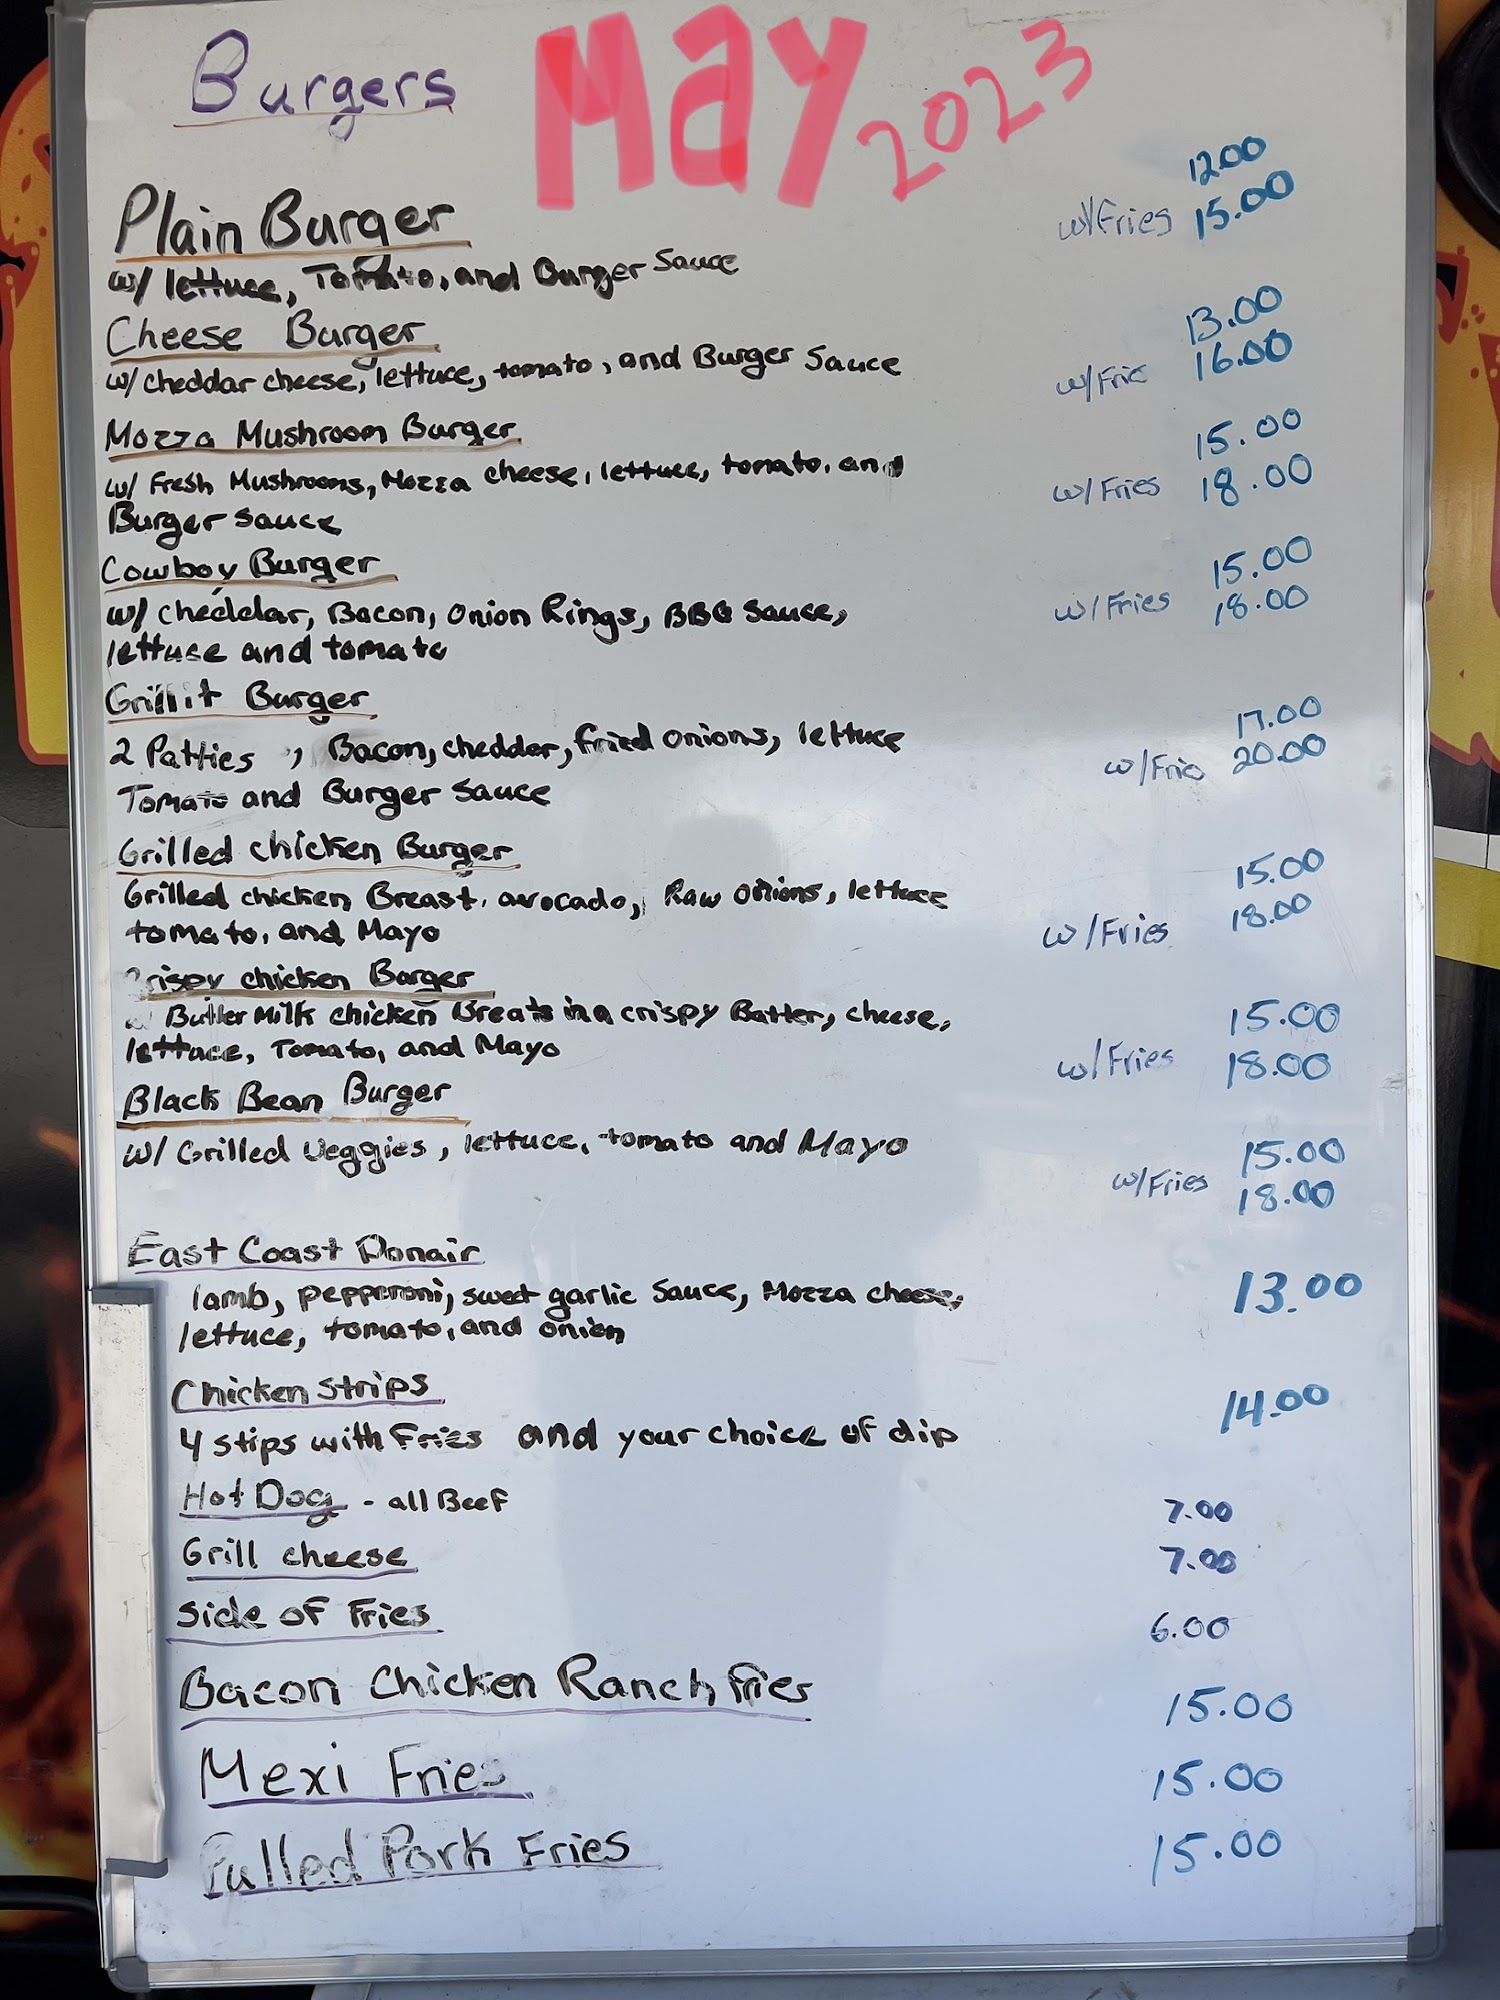 Burgers May 2023
Plain Burger 12.00
w/Fries 15.00
w/ lettuce, Tomato, and Burger Sauce
Cheese Burger 13.00
w/ cheddar cheese, lettuce, tomato, and Burger Sauce w/Frie 16.00
Mozza Mushroom Burger 15.00
w/ Fresh Mushrooms, Mozza cheese, lettuce, tomato, and w/Fries 18.00
Burger Sauce
Cowboy Burger 15.00
w/ cheddar, Bacon, Onion Rings, BBQ Sauce, w/Fries 18.00
lettuce and tomato
Grillit Burger 17.00
2 Patties , Bacon, chedder, fried onions, lettuce w/Frie 20.00
Tomato and Burger Sauce
Grilled chicken Burger 15.00
Grilled chicken Breast, avocado, Raw onions, lettuce
tomato, and Mayo w/Fries 18.00
Crispy chicken Burger
w/ Butter Milk chicken Breats in a crispy Batter, cheese, 15.00
lettuce, Tomato, and Mayo w/Fries 18.00
Black Bean Burger
w/ Grilled Veggies, lettuce, tomato and Mayo 15.00
w/Fries 18.00
East Coast Donair
lamb, pepperoni, sweet garlic Sauce, Mozza cheese, 13.00
lettuce, tomato, and onion
Chicken strips 14.00
4 stips with Fries and your choice of dip
Hot Dog - all Beef 7.00
Grill cheese 7.00
Side of Fries 6.00
Bacon Chicken Ranch Fries 15.00
Mexi Fries 15.00
Pulled Pork Fries 15.00